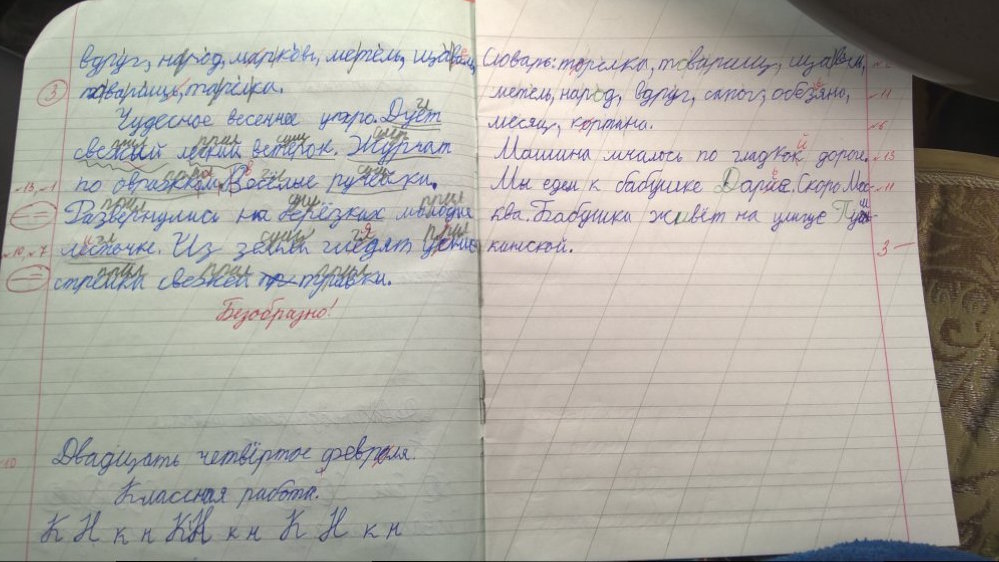 вдруг, народ, марковь, метель, щавель,
товарищь, торелка.
Чудесное весеннее утро. Дует
свежий легкий ветарок. Журчат
по овражкам Весёлые ручейки.
Развернулись на берёзках молодые
листочки. Из земли гледят
стрелки свежей травки.
Безобразно!
Двадцать четвёртое февраля.
Классная работа.
К Н к н К Н к н К Н к н
Словарь: торелка, товарищ, щавель,
метель, народ, вдруг, сапог, обезяна,
месяц, кортина.
Машина мчалось по гладкой дороге.
Мы едем к бабушке Дарие. Скоро Мос-
ква. Бабушка живёт на улице Пуш-
кинской.
3
3 —